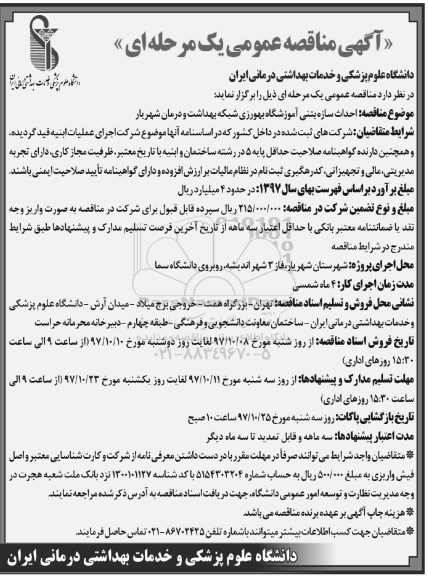 «آگهی مناقصه عمومی یک مرحله ای»
دانشگاه علوم پزشکی و خدمات بهداشتی درمانی ایران
دانشگاه علوم پزشکی و خدمات بهداشتی درمانی ایران
در نظر دارد مناقصه عمومی یک مرحله ای ذیل را برگزار نماید:
موضوع مناقصه: احداث سازه بتنی آموزشگاه بهورزی شبکه بهداشت و درمان شهریار
شرایط متقاضیان: شرکت های ثبت شده در داخل کشور که در اساسنامه آنها موضوع شرکت اجرای عملیات ابنیه قید گردیده،
و همچنین دارنده گواهینامه صلاحیت حداقل پایه ۵ در رشته ساختمان و ابنیه با تاریخ معتبر، ظرفیت مجاز کاری، دارای تجربه
مدیریتی، مالی و تجهیزاتی، کد رهگیری ثبت نام در نظام مالیات بر ارزش افزوده و دارای گواهینامه تأیید صلاحیت ایمنی باشند.
مبلغ برآورد بر اساس فهرست بهای سال ۱۳۹۷: در حدود ۴ میلیارد ریال
مبلغ و نوع تضمین شرکت در مناقصه: ۲۱۵/۰۰۰/۰۰۰ ریال سپرده قابل قبول برای شرکت در مناقصه به صورت واریز وجه
نقد یا ضمانتنامه معتبر بانکی با حداقل اعتبار سه ماهه از تاریخ آخرین فرصت تسلیم مدارک و پیشنهادها طبق شرایط
مندرج در شرایط مناقصه
محل اجرای پروژه: شهرستان شهریار، فاز ۳ شهر اندیشه، روبروی دانشگاه سما
مدت زمان اجرای کار: ۴ ماه شمسی
نشانی محل فروش و تسلیم اسناد مناقصه: تهران - بزرگراه همت - خروجی برج میلاد - میدان آرش - دانشگاه علوم پزشکی
و خدمات بهداشتی درمانی ایران - ساختمان معاونت دانشجویی و فرهنگی - طبقه چهارم - دبیرخانه محرمانه حراست
تاریخ فروش اسناد مناقصه: از روز شنبه مورخ ۹۷/۱۰/۰۸ لغایت روز دوشنبه مورخ ۹۷/۱۰/۱۰ (از ساعت ۹ الی ساعت
۱۵:۳۰ روزهای اداری)
مهلت تسلیم مدارک و پیشنهادها: از روز سه شنبه مورخ ۹۷/۱۰/۱۱ لغایت روز یکشنبه مورخ ۹۷/۱۰/۲۳ (از ساعت ۹ الی
ساعت ۱۵:۳۰ روزهای اداری)
تاریخ بازگشایی پاکات: روز سه شنبه مورخ ۹۷/۱۰/۲۵ ساعت ۱۰ صبح
مدت اعتبار پیشنهادها: سه ماهه و قابل تمدید تا سه ماه دیگر
* متقاضیان واجد شرایط می توانند صرفاً در مهلت مقرر با در دست داشتن معرفی نامه از شرکت و کارت شناسایی معتبر و اصل
فیش واریزی به مبلغ ۵۰۰/۰۰۰ ریال به حساب شماره ۵۱۵۴۳۰۳۲۰۴ با کد شناسه ۱۳۰۰۱۰۱۱۲۷ نزد بانک ملت شعبه هجرت در
وجه مدیریت نظارت و توسعه امور عمومی دانشگاه، جهت دریافت اسناد مناقصه به آدرس ذکر شده مراجعه نمایند.
* هزینه چاپ آگهی بر عهده برنده مناقصه می باشد.
* متقاضیان جهت کسب اطلاعات بیشتر میتوانند با شماره تلفن ۸۶۷۰۲۴۲۵-۰۲۱ تماس حاصل فرمایند.
دانشگاه علوم پزشکی و خدمات بهداشتی درمانی ایران
۰۲۱-۸۸۳۴۹۶۷۰-۵